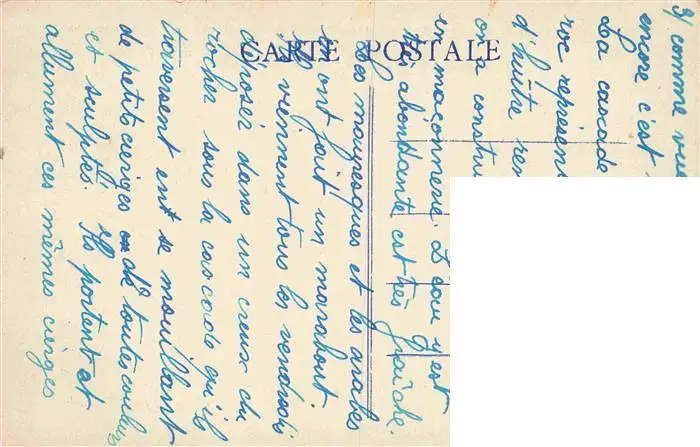 CARTE POSTALE
3/ comme vue
encore c'est
La cascade
roc représen
d'huître ren
on a constru
en maçonnerie. L'eau y est
très abondante est très fraîche.
Les mauresques et les arabes
en ont fait un marabout
et viennent tous les vendredi
déposer dans un creux du
rocher sous la cascade qu'ils
traversent en se mouillant
de petits cierges de toutes couleurs
et sculptés. Ils portent et
allument ces mêmes cierges